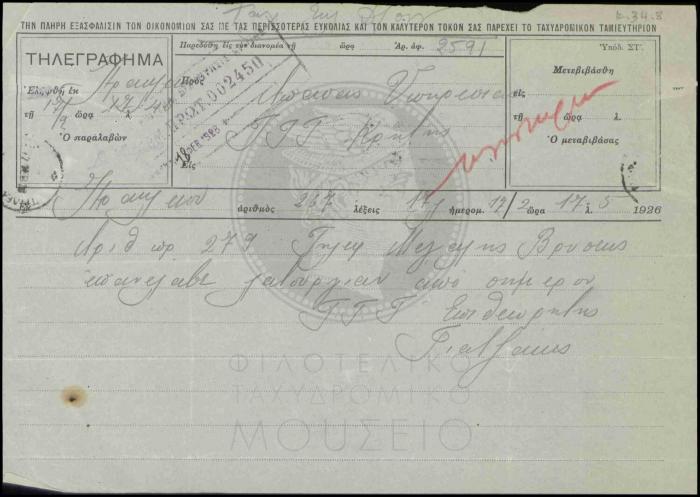 ε-34-8
ΤΗΝ ΠΛΗΡΗ ΕΞΑΣΦΑΛΙΣΙΝ ΤΩΝ ΟΙΚΟΝΟΜΙΩΝ ΣΑΣ ΜΕ ΤΑΣ ΠΕΡΙΣΣΟΤΕΡΑΣ ΕΥΚΟΛΙΑΣ ΚΑΙ ΤΟΝ ΚΑΛΥΤΕΡΟΝ ΤΟΚΟΝ ΣΑΣ ΠΑΡΕΧΕΙ ΤΟ ΤΑΧΥΔΡΟΜΙΚΟΝ ΤΑΜΙΕΥΤΗΡΙΟΝ
ΤΗΛΕΓΡΑΦΗΜΑ
Ἐλήφθη ἐκ
τῇ 17/2 ὥρα λ.
Ὁ παραλαβὼν
Παρεδόθη εἰς τὸν διανομέα τῇ ὥρα Ἀρ. ἀφ. 2591
Πρὸς Ἁπάσας Ὑπηρεσίας
ΤΤΤ Κρήτης
Εἰς
ΠΡΩΤ 002450
Ὑπόδ. ΣΤ'.
Μετεβιβάσθη
εἰς
τῇ ὥρα λ.
Ὁ μεταβιβάσας
Ἡρακλείου ἀριθμὸς 267 λέξεις 17 ἡμερομ. 17/2 ὥρα 17 λ. 5 1926
Ἀριθ 279 Τηλεγ Μεγάλης Βρύσεως
ἐπανέλαβε λειτουργίαν ἀπὸ σήμερον
ΤΤΤ Ἐπιθεωρητὴς
Πιατζάκης
ΦΙΛΟΤΕΛΙΚΟ
ΤΑΧΥΔΡΟΜΙΚΟ
ΜΟΥΣΕΙΟ